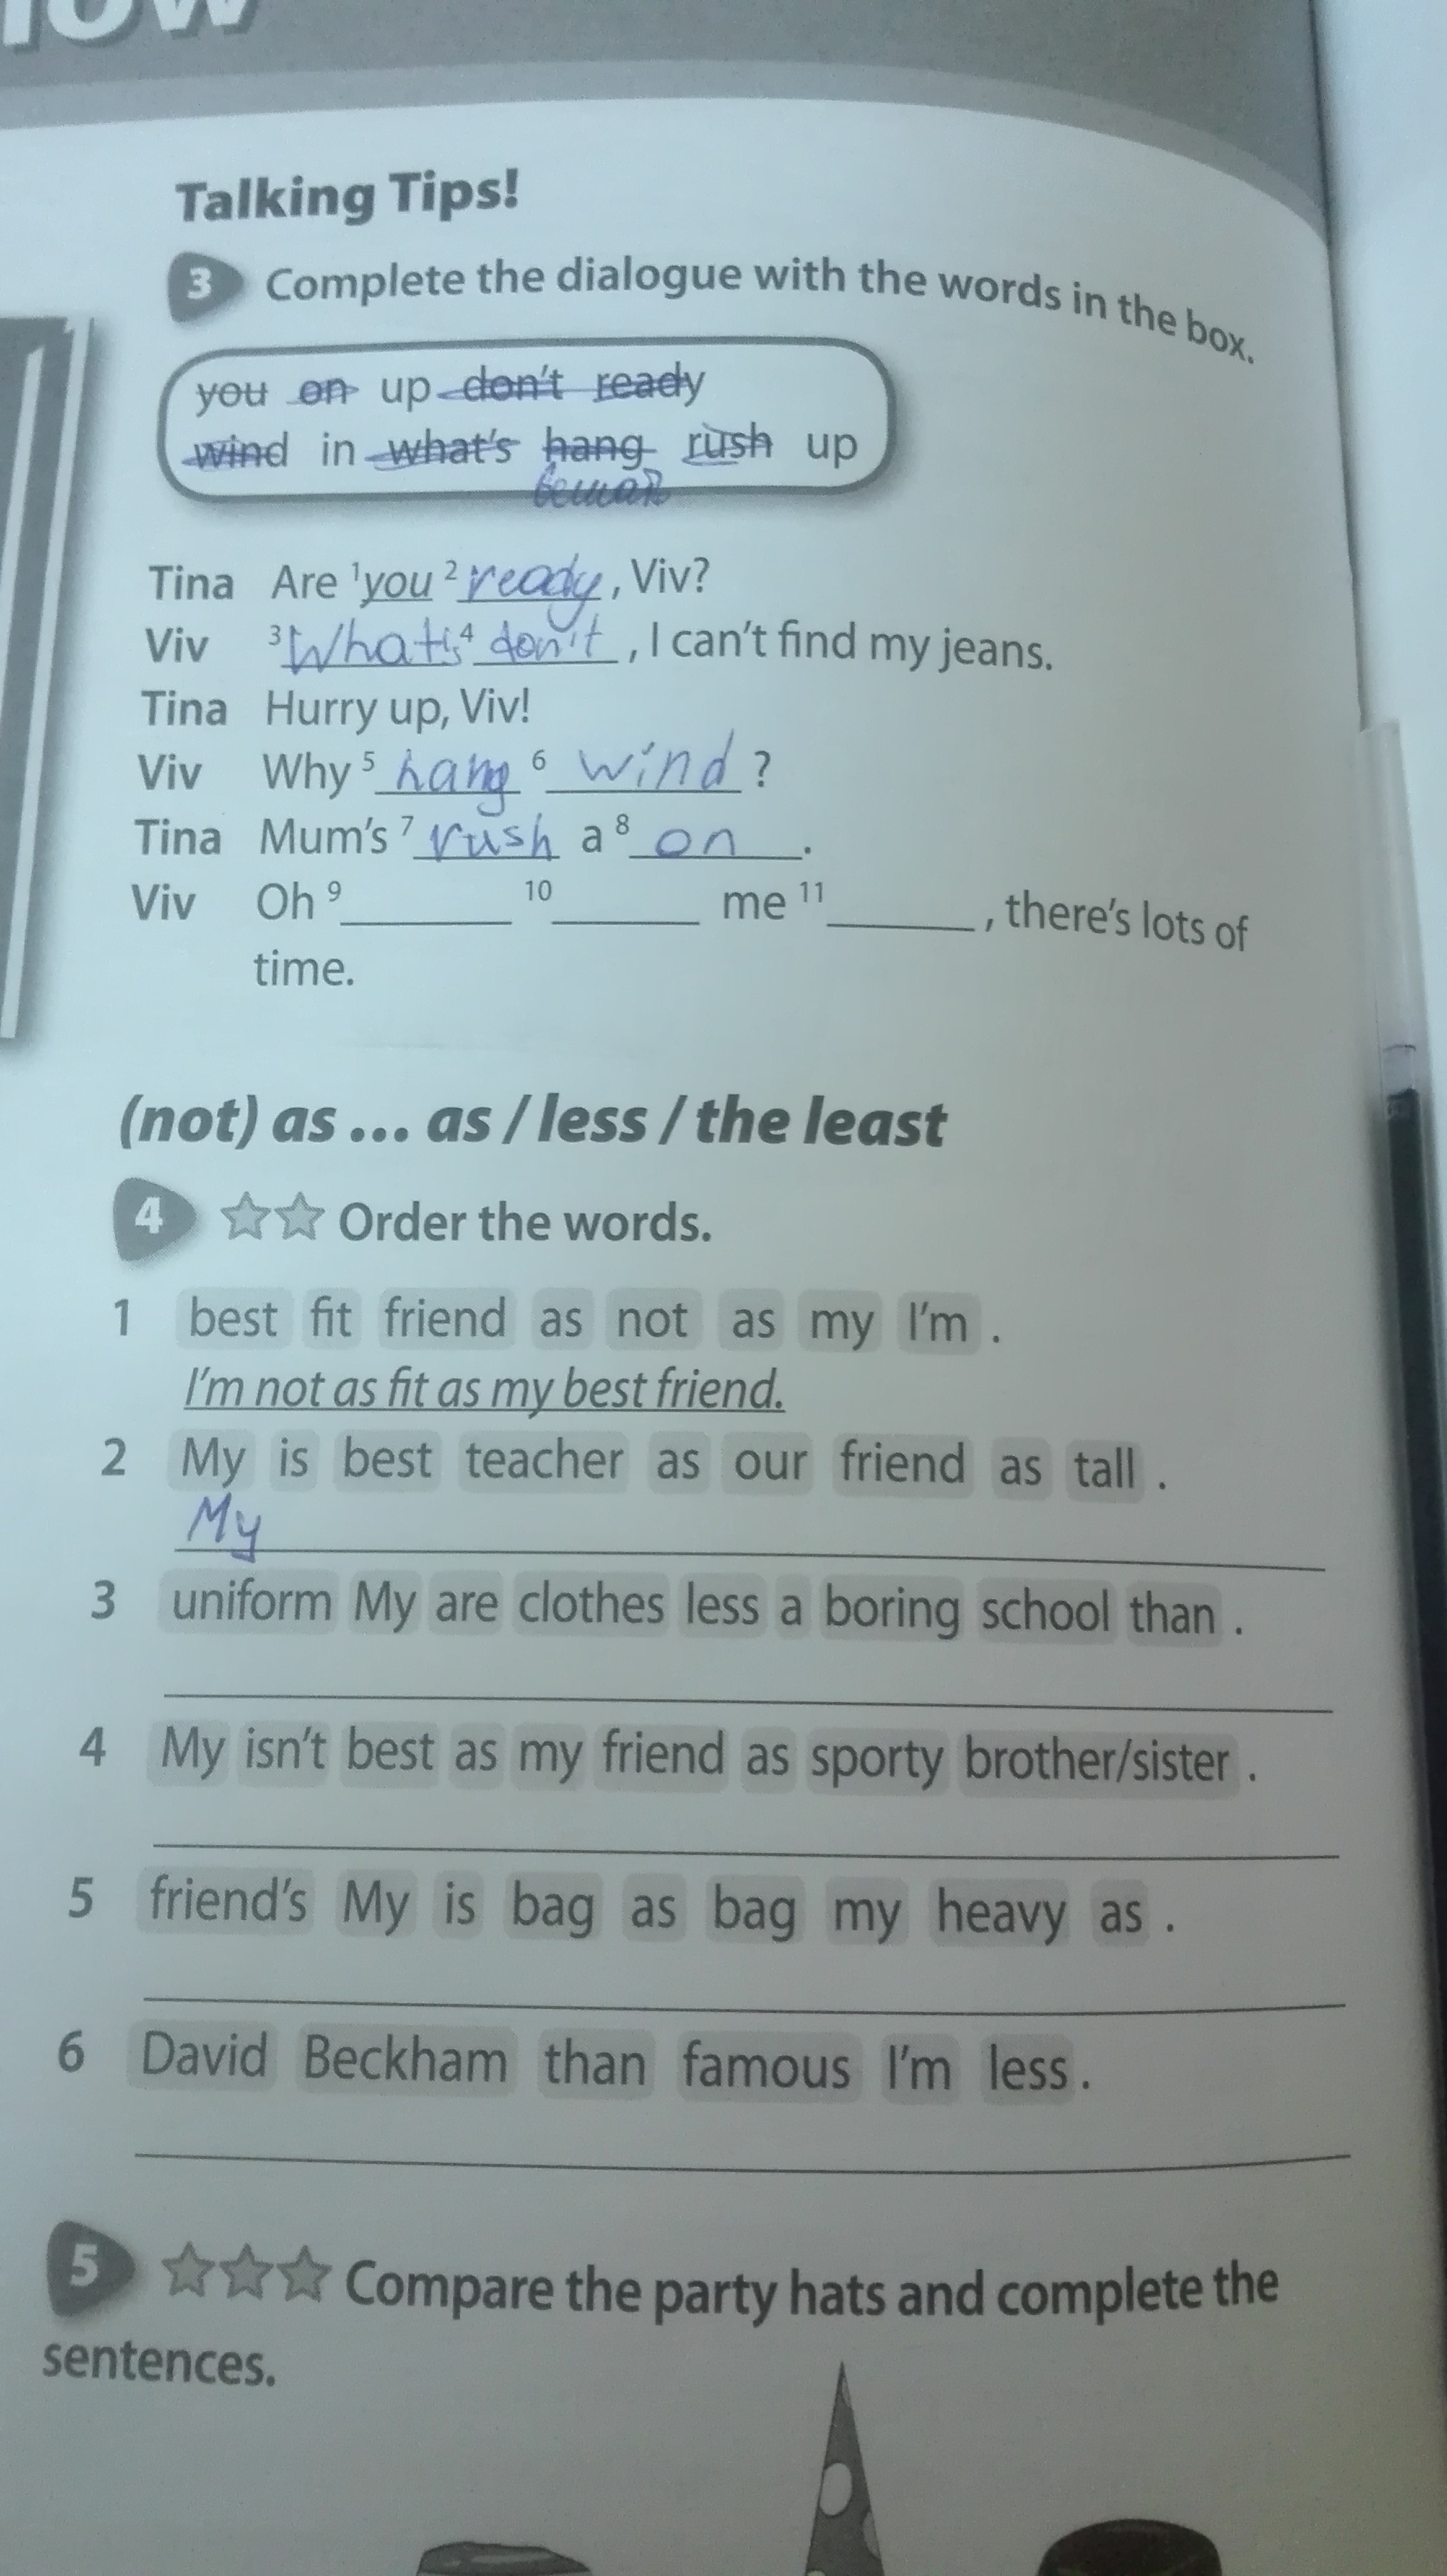 Talking Tips!
3 Complete the dialogue with the words in the box.
you on up don't ready
wind in what's hang rush up
Tina Are ¹you ² ready, Viv?
Viv ³What's ⁴ don't, I can't find my jeans.
Tina Hurry up, Viv!
Viv Why ⁵ hang ⁶ wind ?
Tina Mum's ⁷ rush a ⁸ on.
Viv Oh ⁹______ ¹⁰______ me ¹¹______, there's lots of
time.
(not) as ... as / less / the least
4 ☆☆ Order the words.
1 best fit friend as not as my I'm .
I'm not as fit as my best friend.
2 My is best teacher as our friend as tall .
My
3 uniform My are clothes less a boring school than .
4 My isn't best as my friend as sporty brother/sister .
5 friend's My is bag as bag my heavy as .
6 David Beckham than famous I'm less .
5 ☆☆☆ Compare the party hats and complete the
sentences.